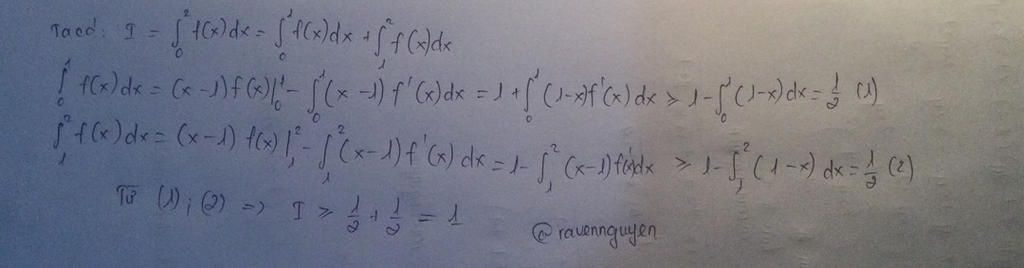 Ta có: I = ∫₀² f(x)dx = ∫₀¹ f(x)dx + ∫₁² f(x)dx
∫₀¹ f(x)dx = (x-1)f(x)|₀¹ - ∫₀¹ (x-1) f'(x)dx = 1 + ∫₀¹ (1-x)f'(x)dx ≥ 1 - ∫₀¹ (1-x)dx = 1/2 (1)
∫₁² f(x)dx = (x-1) f(x)|₁² - ∫₁² (x-1) f'(x)dx = 1 - ∫₁² (x-1) f'(x)dx ≥ 1 - ∫₁² (1-x) dx = 1/2 (2)
Từ (1); (2) => I ≥ 1/2 + 1/2 = 1
@ravennguyen